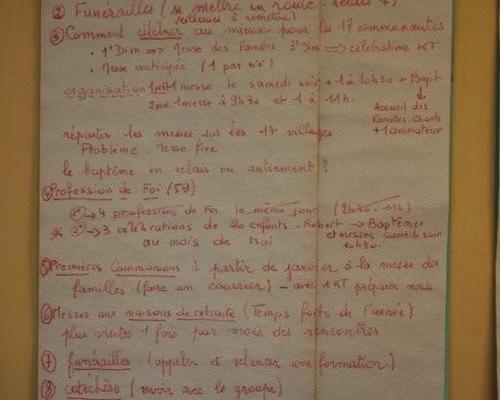 ② Funérailles (se mettre en route relais 4)
③ Comment célébrer au mieux pour les 17 communautés
• 1er Dim => Messe des familles 3e Dim => célébrations KT
• Messe anticipée (1 par
organisation 1 messe le samedi soir + 1 à 10h30 + Bapt
1 messe à 9h30 et 1 à 11h.
Accueil des
Familles. Chants
+ 1 animateur
répartir les messes sur les 17 villages
Problème : Messe fixe
le baptême en relais ou autrement ?
④ Profession de Foi (59)
1° → 4 professions de Foi le même jour
* 2° → 3 célébrations de 20 enfants - → Baptêmes
et messes samedi soir
10h30.
au mois de Mai
⑤ Premières Communions à partir de janvier à la messe des
familles (faire un courrier) - avec 1 KT préparer messe
⑥ Messes aux maisons de retraite (Temps forts de l'année)
plus visites 1 fois par mois des rencontres
⑦ funérailles (appeler et relancer une formation.)
⑧ catéchèse (revoir avec le groupe)